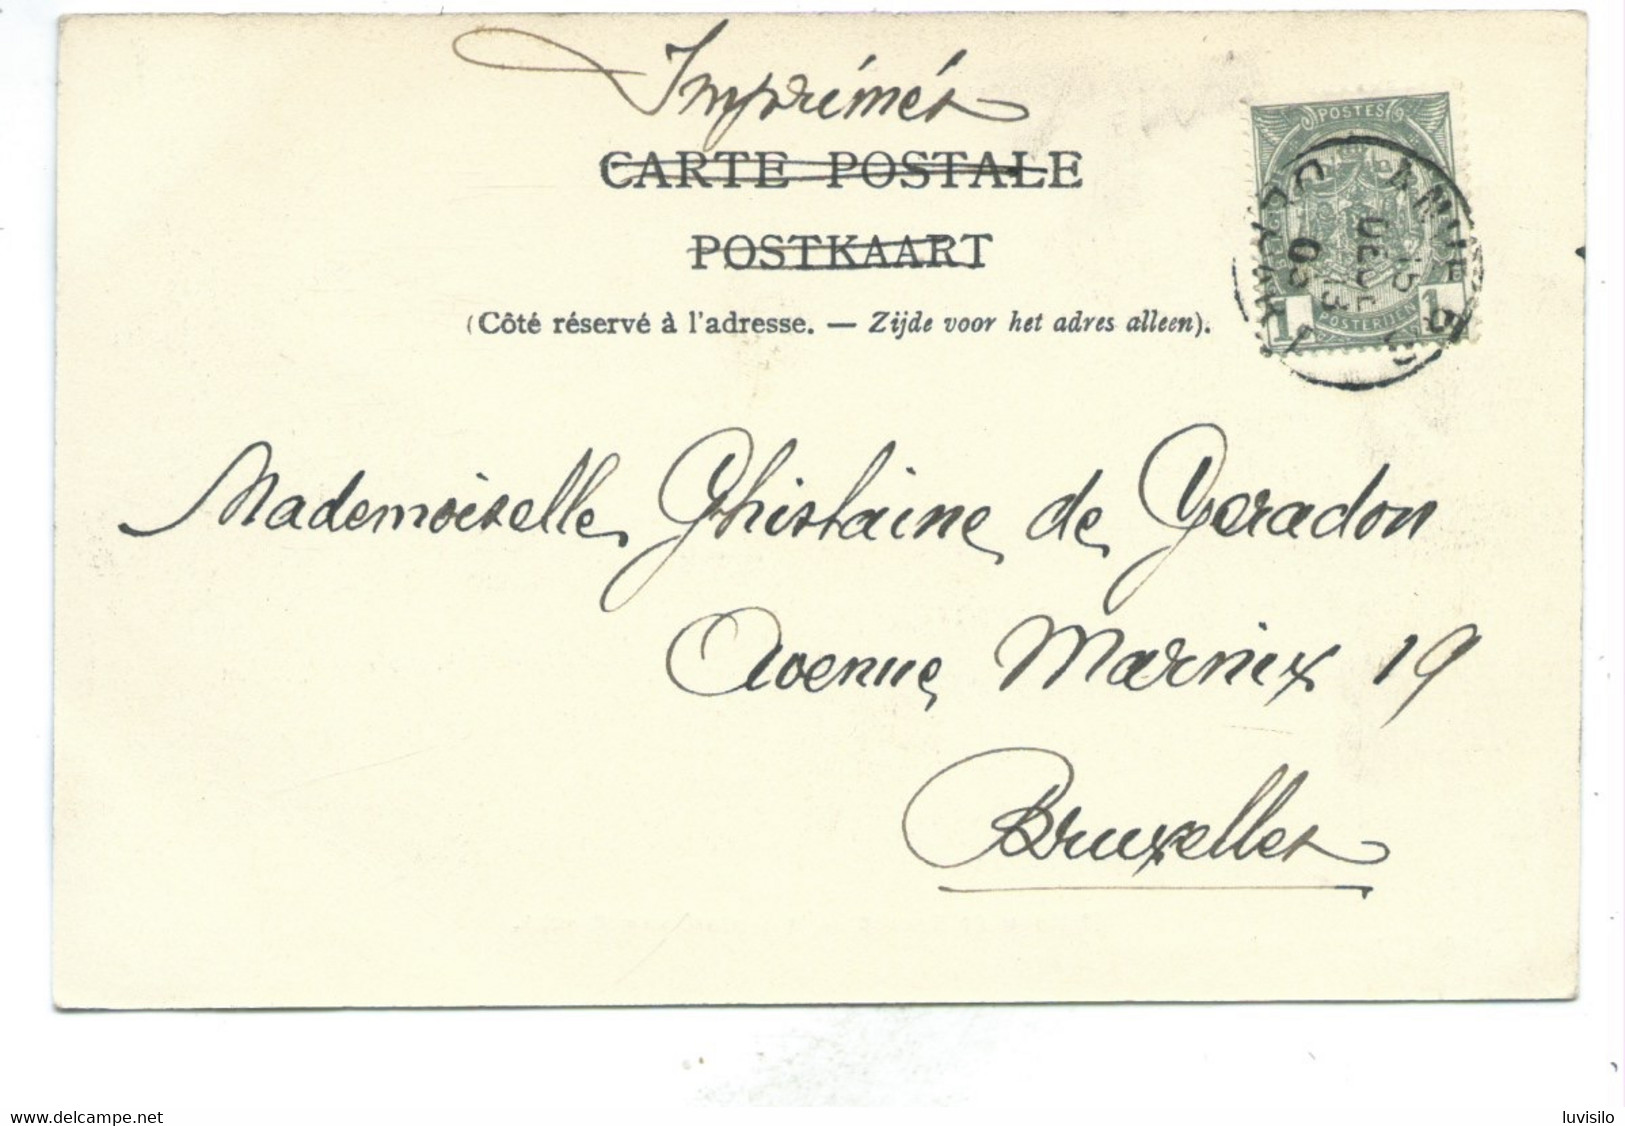 Imprimés
CARTE POSTALE
POSTKAART
(Côté réservé à l'adresse. — Zijde voor het adres alleen).
POSTES
1
1
Mademoiselle Ghislaine de Geradon
Avenue Marnix 19
Bruxelles
www.delcampe.net
luvisilo